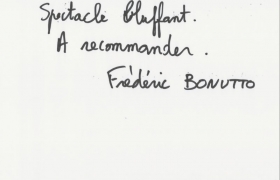 Spectacle bluffant.
A recommander.
Frédéric BONUTTO